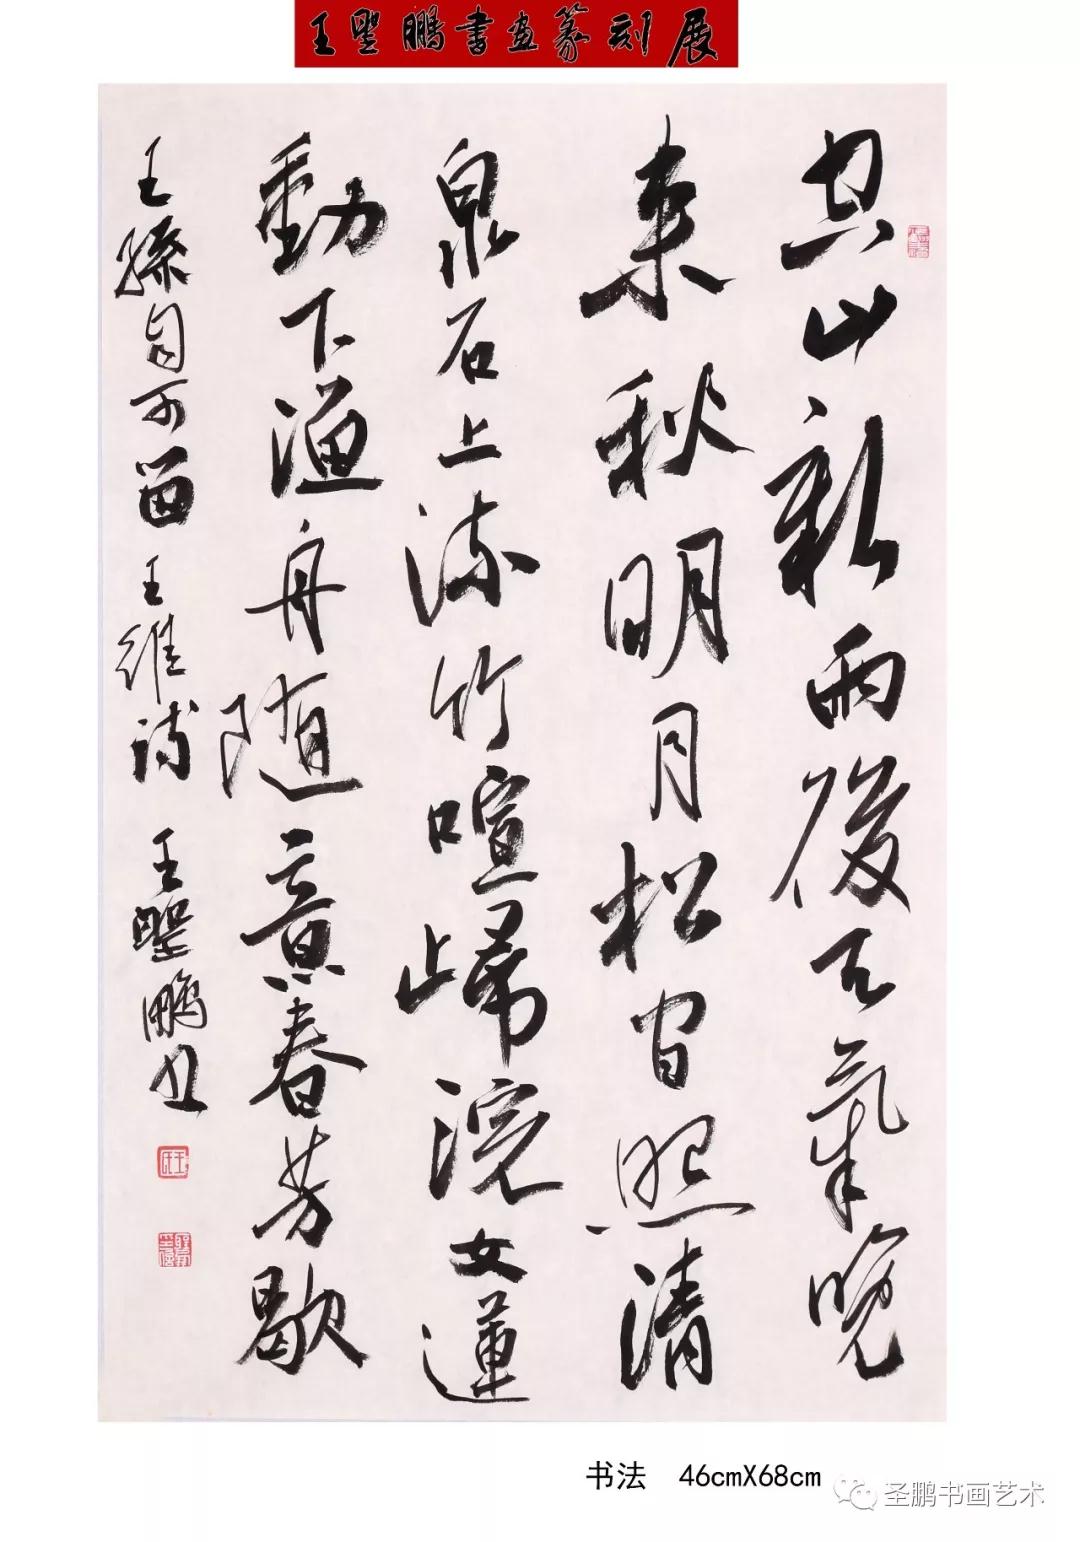 王聖鵬書画篆刻展
空山新雨後天氣晚
来秋明月松間照清
泉石上流竹喧歸浣女蓮
動下漁舟随意春芳歇
王孫自可留 王維詩 王聖鵬書
书法 46cmX68cm
圣鹏书画艺术